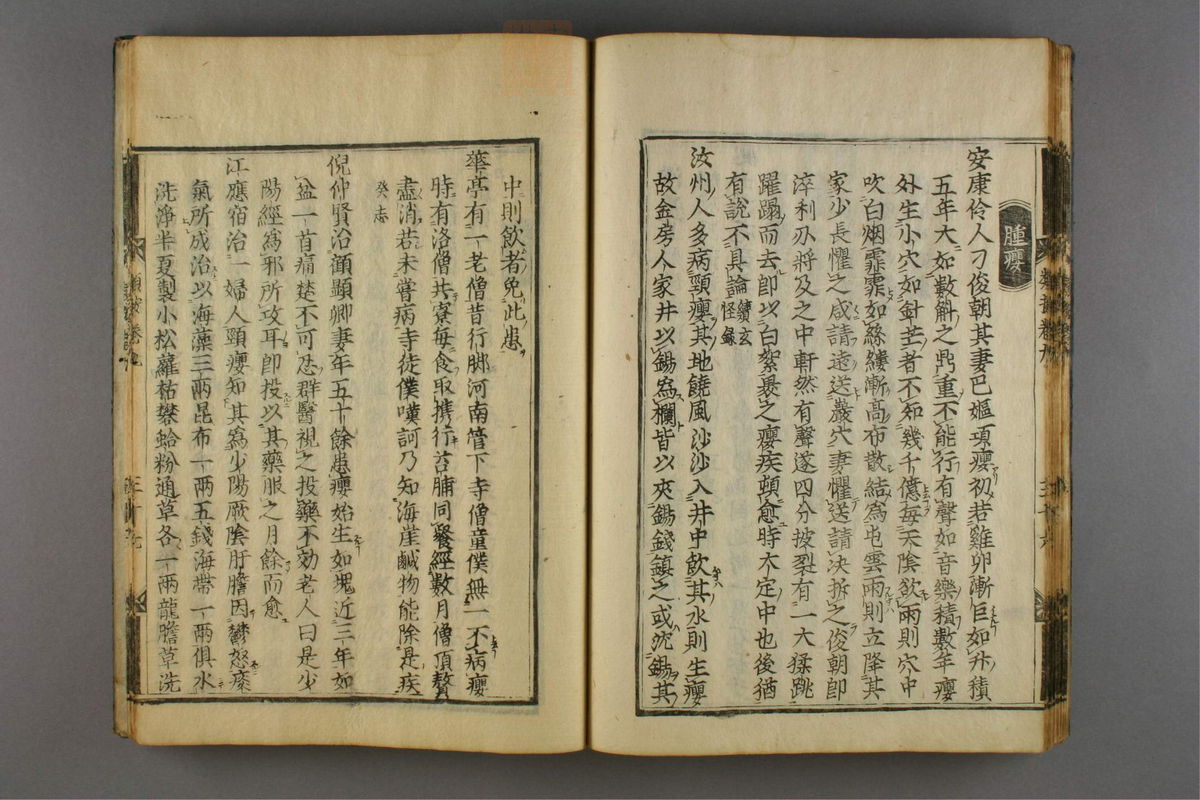 腫癭
安康伶人刁俊朝其妻巴嫗項癭初若雞卵漸巨如升積
五年大如數斛之鼎重不能行有聲如音樂積數年癭
外生小穴如針芒者不知幾千億每天陰欲雨則穴中
吹白烟霏霏如絲縷漸高布散結為屯雲雨則立降其
家少長懼之咸請遠送巖穴妻懼送請决拆之俊朝即
淬利刃將及之中軒然有聲遂四分披裂有一大猱跳
躍蹋而去即以白絮裹之癭疾頓愈時不定中也後猶
有說不具論續玄怪錄
汝州人多病頸癭其地饒風沙沙入井中飲其水則生癭
故金房人家井以錫為欄皆以夾錫錢鎮之或沈錫其
中則飲者免此患
華亭有一老僧昔行脚河南管下寺僧童僕無一不病癭
時有洛僧共寮每食取攜行苔脯同餐經數月僧頂贅
盡消若未嘗病寺徒僕嘆訶乃知海崖鹹物能除是疾
癸志
倪仲賢治顧顯卿妻年五十餘患癭始生如塊近三年如
盆一首痛楚不可忍群醫視之投藥不効老人曰是少
陽經為邪所攻耳即投以其藥服之月餘而愈
江應宿治一婦人頸癭知其為少陽厥陰肝膽因鬱怒痰
氣所成治以海藻三兩昆布一兩五錢海帶一兩俱水
洗淨半夏製小松蘿枯礬蛤粉通草各一兩龍膽草洗